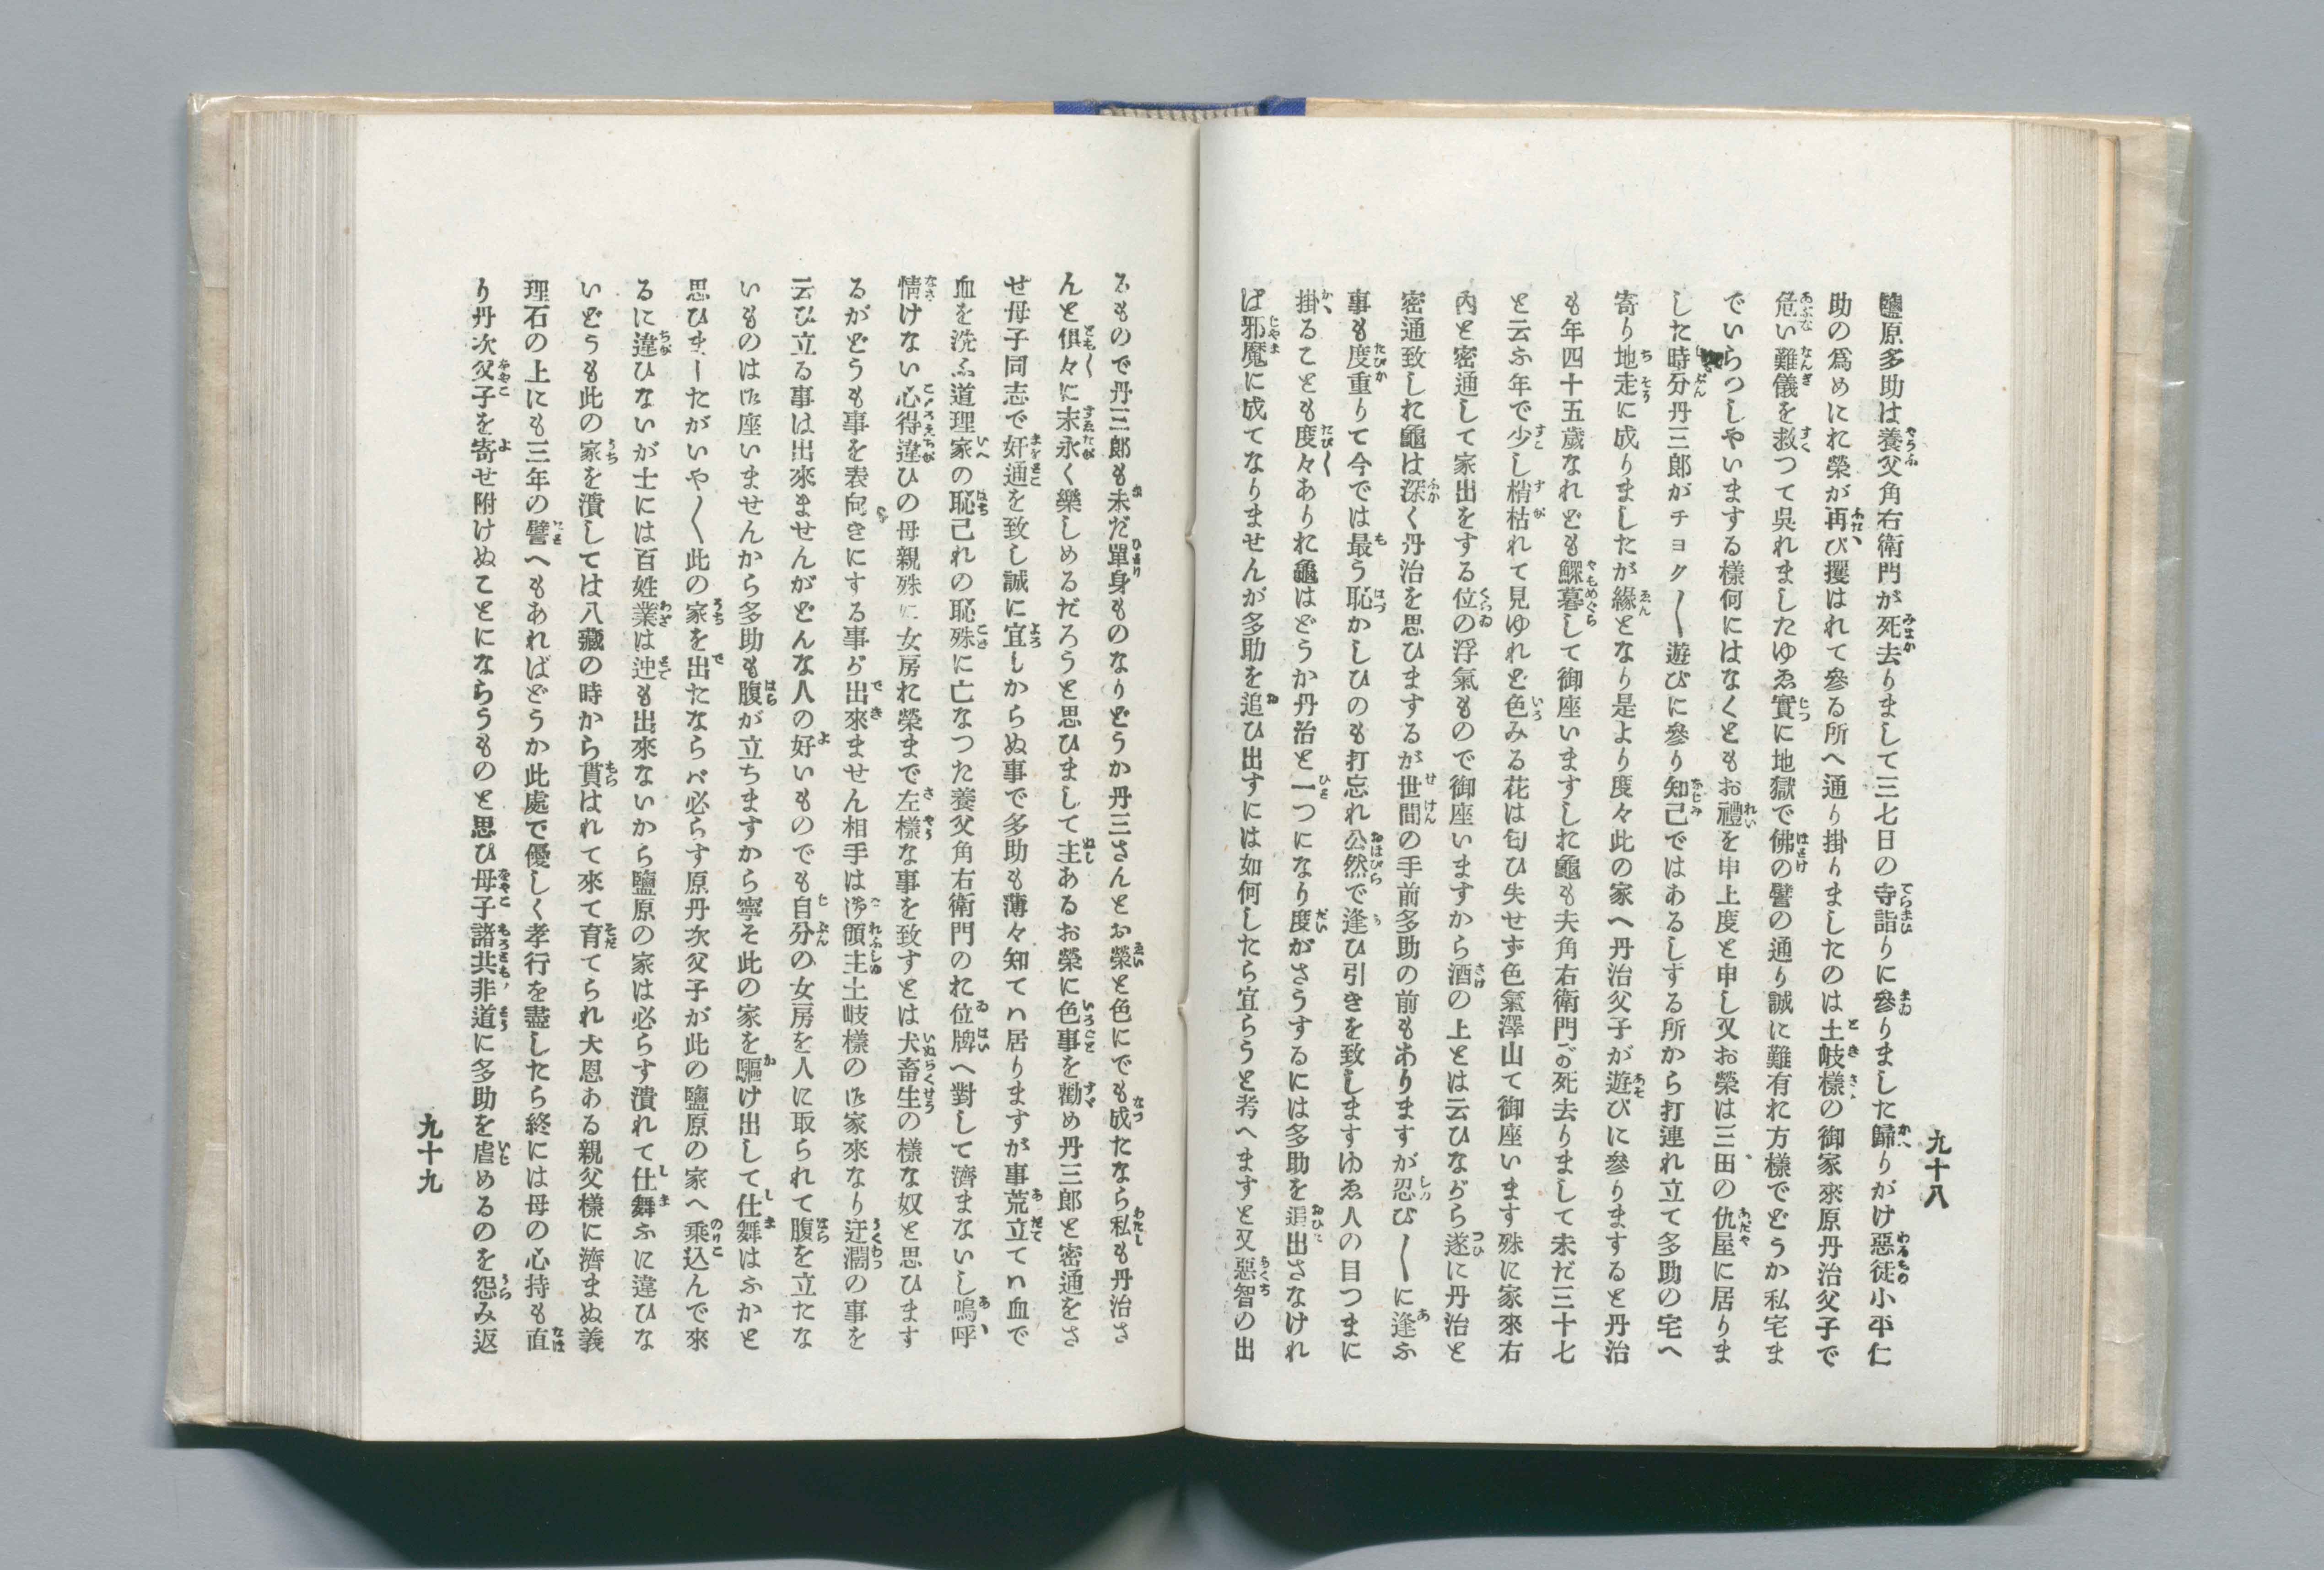 九十八
鹽原多助は養父角右衛門が死去りまして三七日の寺詣りに參りました歸りがけ惡徒小平仁
助の爲めにお榮が再び攫はれて參る所へ通り掛りましたのは土岐樣の御家來原丹治父子で
危い難儀を救つて呉れましたゆゑ實に地獄で佛の譬の通り誠に難有れ方樣でどうか私宅ま
でいらつしやいまする樣何にはなくともお禮を申上度と申し又お榮は三田の仇屋に居りま
した時分丹三郎がチョク〳〵遊びに參り知己ではあるしする所から打連れ立て多助の宅へ
寄り地走に成りましたが緣となり是より度々此の家へ丹治父子が遊びに參りますると丹治
も年四十五歲なれども鰥暮して御座いますしお龜も夫角右衛門が死去りまして未だ三十七
と云ふ年で少し梢枯れて見ゆれど色みる花は匂ひ失せず色氣澤山て御座います殊に家來右
內と密通して家出をする位の浮氣もので御座いますから酒の上とは云ひながら遂に丹治と
密通致しお龜は深く丹治を思ひまするが世間の手前多助の前もありますが忍び〳〵に逢ふ
事も度重りて今では最う恥かしひのも打忘れ公然で逢ひ引きを致しますゆゑ人の目つまに
掛ることも度々ありお龜はどうか丹治と一つになり度がさうするには多助を追出さなけれ
ば邪魔に成てなりませんが多助を追ひ出すには如何したら宜らうと考へますと又惡智の出
るもので丹三郎も未だ單身ものなりどうか丹三さんとお榮と色にでも成たなら私も丹治さ
んと俱々に末永く樂しめるだろうと思ひまして主あるお榮に色事を勸め丹三郎と密通をさ
せ母子同志で奸通を致し誠に宜しからぬ事で多助も薄々知てハ居りますが事荒立てハ血で
血を洗ふ道理家の恥己れの恥殊に亡なつた養父角右衛門のお位牌へ對して濟まないし嗚呼
情けない心得違ひの母親殊に女房お榮まで左樣な事を致すとは犬畜生の樣な奴と思ひます
るがどうも事を表向きにする事が出來ません相手は御領主土岐樣の御家來なり迂濶の事を
云ひ立る事は出來ませんがどんな人の好いものでも自分の女房を人に取られて腹を立たな
いものは御座いませんから多助も腹が立ちますから寧そ此の家を驅け出して仕舞はふかと
思ひましたがいや〳〵此の家を出たならバ必らす原丹次父子が此の鹽原の家へ乘込んで來
るに違ひないが士には百姓業は迚も出來ないから鹽原の家は必らす潰れて仕舞ふに違ひな
いどうも此の家を潰しては八藏の時から貰はれて來て育てられ大恩ある親父樣に濟まぬ義
理石の上にも三年の譬へもあればどうか此處で優しく孝行を盡したら終には母の心持も直
り丹次父子を寄せ附けぬことにならうものと思ひ母子諸共非道に多助を虐めるのを怨み返
九十九